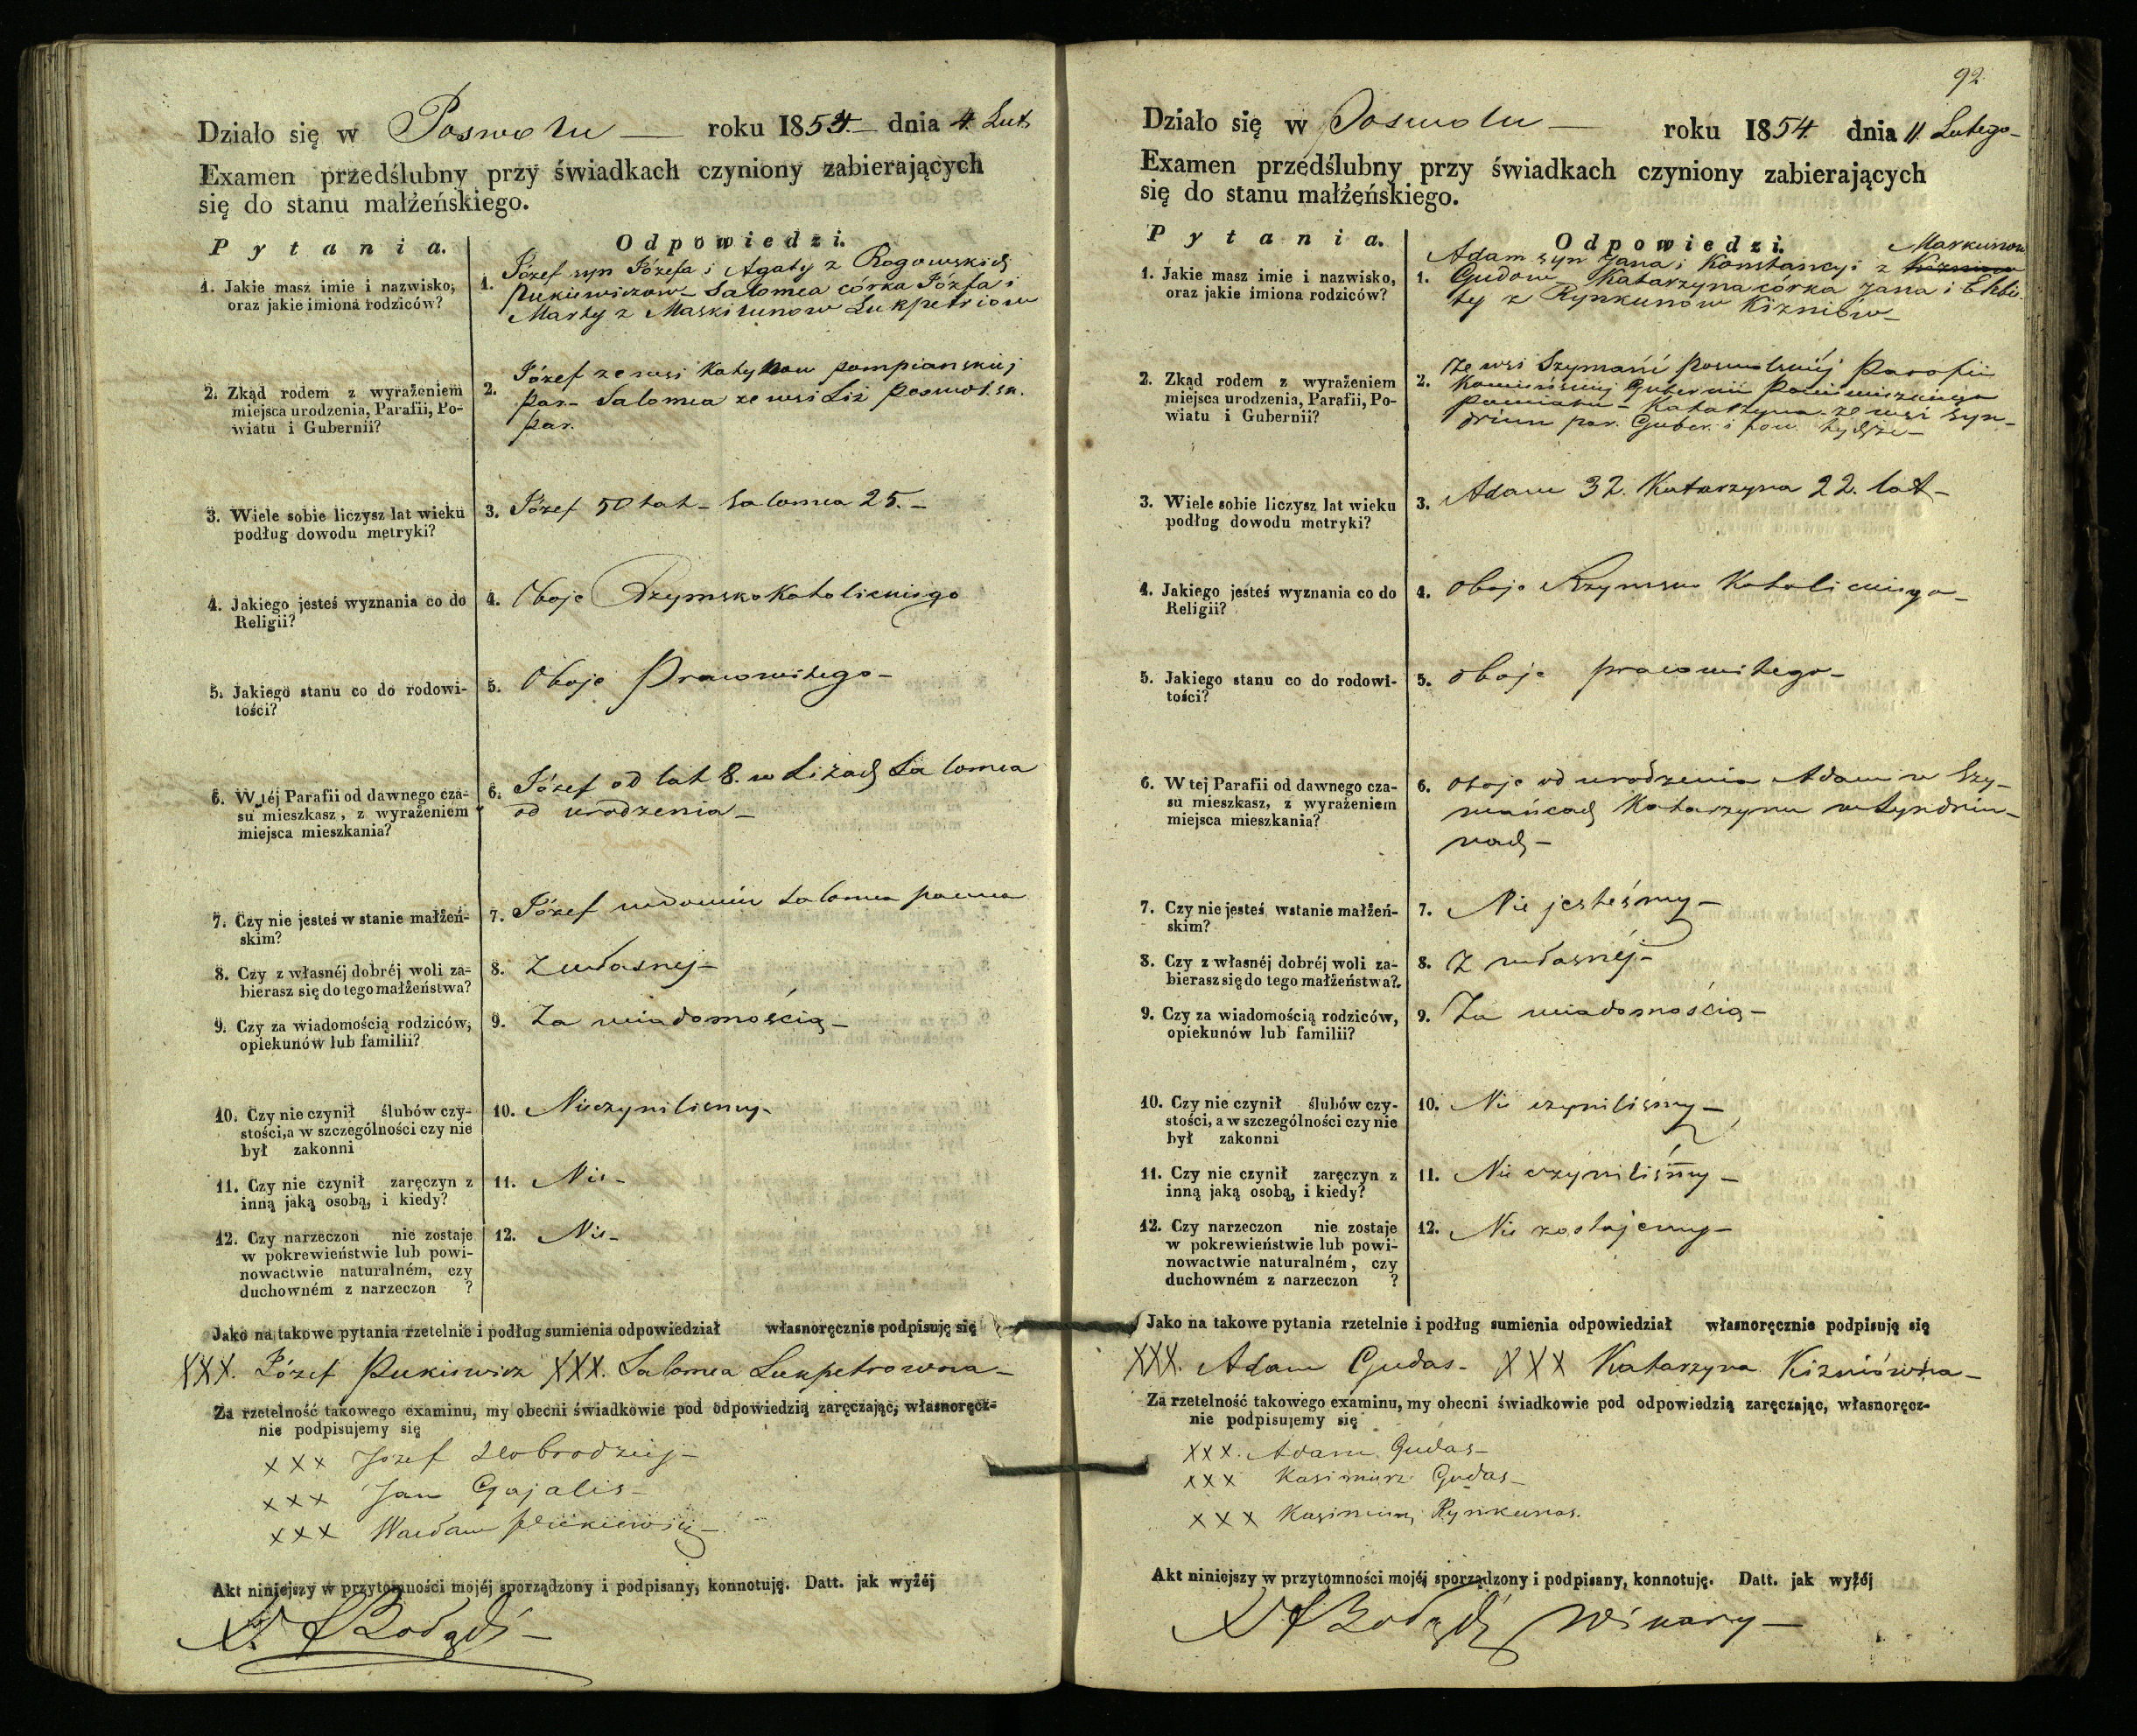 Działo się w Poswolu — roku 1854. — dnia 4. Lut.
Examen przedślubny przy świadkach czyniony zabierających
się do stanu małżeńskiego.
Pytania.
Odpowiedzi.
1. Jakie masz imie i nazwisko,
oraz jakie imiona rodziców?
1. Józef syn Józefa i Agaty z Rogowskich
Pukiewiczów – Salomea córka Józefa i
Marty z Maskilunow Lukpetriow
2. Zkąd rodem z wyrażeniem
miejsca urodzenia, Parafii, Po-
wiatu i Gubernii?
2. Józef ze wsi pompianskiej
par. – Salomea ze wsi Liż poswolsk.
par.
3. Wiele sobie liczysz lat wieku
podług dowodu metryki?
3. Józef 50 lat – Salomea 25. –
4. Jakiego jesteś wyznania co do
Religii?
4. Oboje Rzymsko Katolickiego
5. Jakiego stanu co do rodowi-
tości?
5. Oboje Pracowitego –
6. W téj Parafii od dawnego cza-
su mieszkasz, z wyrażeniem
miejsca mieszkania?
6. Józef od lat 8. w Liżach Salomea
od urodzenia –
7. Czy nie jesteś w stanie małżeń-
skim?
7. Józef wdowiec Salomea panna
8. Czy z własnéj dobréj woli za-
bierasz się do tego małżeństwa?
8. Z własnej –
9. Czy za wiadomością rodziców,
opiekunów lub familii?
9. Za wiadomością –
10. Czy nie czynił ślubów czy-
stości, a w szczególności czy nie
był zakonni
10. Nieczynilismy –
11. Czy nie czynił zaręczyn z
inną jaką osobą, i kiedy?
11. Nie –
12. Czy narzeczon nie zostaje
w pokrewieństwie lub powi-
nowactwie naturalném, czy
duchowném z narzeczon ?
12. Nie –
Jako na takowe pytania rzetelnie i podług sumienia odpowiedział własnoręcznie podpisuję się
XXX. Józef Pukiewicz XXX. Salomea Lukpetrowna –
Za rzetelność takowego examinu, my obecni świadkowie pod odpowiedzią zaręczając, własnoręcz-
nie podpisujemy się
xxx Jozef Dobrodziej –
xxx Jan Gajalis –
xxx Wacław Pukiewicz –
Akt niniejszy w przytomności mojéj sporządzony i podpisany, konnotuję. Datt. jak wyżéj
92.
Działo się w Poswolu — roku 1854 dnia 11. Lutego –
Examen przedślubny przy świadkach czyniony zabierających
się do stanu małżeńskiego.
Pytania.
Odpowiedzi.
1. Jakie masz imie i nazwisko,
oraz jakie imiona rodziców?
Markunow
1. Adam syn Jana i Konstancyi z
Gudow – Katarzyna córka Jana i Elżbie
ty z Rynkunów Kizniów –
2. Zkąd rodem z wyrażeniem
miejsca urodzenia, Parafii, Po-
wiatu i Gubernii?
2. Ze wsi Szymańć poswolskiéj Parafii
Kowieńskiej Gubernii Poniewiezkiego
Powiatu – Katarzyna ze wsi Syn-
driun par. Guber. i pow. tychże –
3. Wiele sobie liczysz lat wieku
podług dowodu metryki?
3. Adam 32. Katarzyna 22. lat –
4. Jakiego jesteś wyznania co do
Religii?
4. Oboje Rzymsko Katolickiego –
5. Jakiego stanu co do rodowi-
tości?
5. Oboje pracowitego –
6. W tej Parafii od dawnego cza-
su mieszkasz, z wyrażeniem
miejsca mieszkania?
6. Oboje od urodzenia Adam w Szy-
mańcach Katarzyna w Syndriu-
nach –
7. Czy nie jesteś wstanie małżeń-
skim?
7. Nie jesteśmy –
8. Czy z własnéj dobréj woli za-
bierasz się do tego małżeństwa?
8. Z własnéj –
9. Czy za wiadomością rodziców,
opiekunów lub familii?
9. Za wiadomością –
10. Czy nie czynił ślubów czy-
stości, a w szczególności czy nie
był zakonni
10. Nie czyniliśmy –
11. Czy nie czynił zaręczyn z
inną jaką osobą, i kiedy?
11. Nie czyniliśmy –
12. Czy narzeczon nie zostaje
w pokrewieństwie lub powi-
nowactwie naturalném, czy
duchowném z narzeczon ?
12. Nie zostajemy –
Jako na takowe pytania rzetelnie i podług sumienia odpowiedział własnoręcznie podpisuję się
XXX. Adam Gudas – XXX Katarzyna Kizniówna –
Za rzetelność takowego examinu, my obecni świadkowie pod odpowiedzią zaręczając, własnoręcz-
nie podpisujemy się
xxx. Adam Gudas –
xxx Kasimierz Gudas –
xxx Kasimierz Rynkunas.
Akt niniejszy w przytomności mojéj sporządzony i podpisany, konnotuję. Datt. jak wyżéj
Wikary –